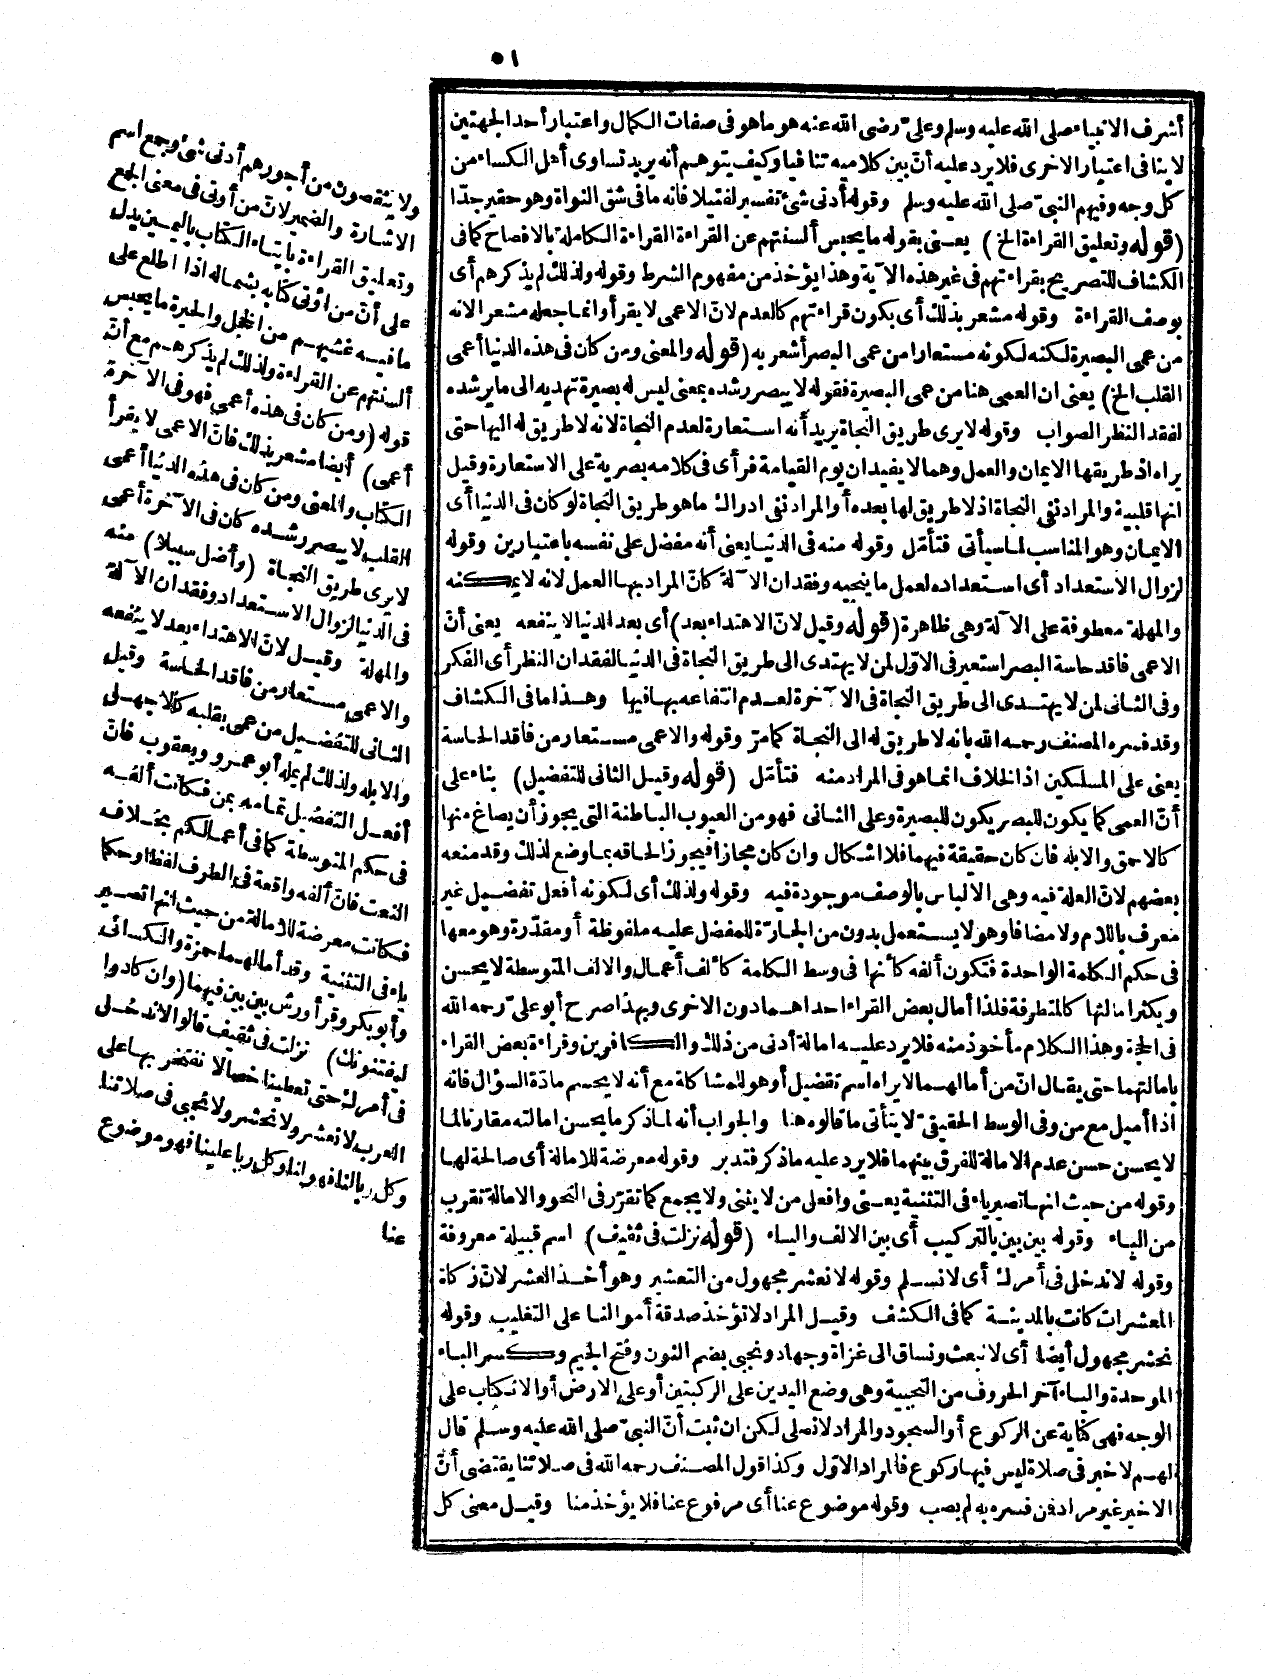 ٥١
أشرف الانبياء صلى الله عليه وسلم وعلىّ رضى الله عنه هو ما هو فى صفات الكمال واعتبار أحد الجهتين
لا ينافى اعتبار الاخرى فلا يرد عليه أنّ بين كلاميه تنافيا وكيف يتوهم أنه يريد تساوى أهل الكساء من
كل وجه وفيهم النبىّ صلى الله عليه وسلم وقوله أدنى شئ تفسير لفتيلا فانه ما فى شق النواة وهو حقير جدّا
(قوله وتعليق القراءة الخ) يعنى بقوله ما يحبس ألسنتهم عن القراءة القراءة الكاملة بالافصاح كما فى
الكشاف للتصريح بقراءتهم فى غير هذه الآية وهذا يؤخذ من مفهوم الشرط وقوله ولذلك لم يذكرهم أى
بوصف القراءة وقوله مشعر بذلك أى بكون قراءتهم كالعدم لانّ الاعمى لا يقرأ وانما جعله مشعرا لانه
من عمى البصيرة لكنه لكونه مستعارا من عمى البصر أشعر به (قوله والمعنى ومن كان فى هذه الدنيا أعمى
القلب الخ) يعنى ان العمى هنا من عمى البصيرة فقوله لا يبصر رشده بمعنى ليس له بصيرة تهديه الى ما يرشده
لفقد النظر الصواب وقوله لا يرى طريق النجاة يريد أنه استعارة لعدم النجاة لانه لا طريق له اليها حتى
يراه اذ طريقها الايمان والعمل وهما لا يفيدان يوم القيامة فرأى فى كلامه بصرية على الاستعارة وقيل
انها قلبية والمراد نفى النجاة اذ لا طريق لها بعده أو المراد نفى ادراك ما هو طريق النجاة لو كان فى الدنيا أى
الايمان وهو المناسب لما سيأتى فتأمّل وقوله منه فى الدنيا يعنى أنه مفضل على نفسه باعتبارين وقوله
لزوال الاستعداد أى استعداده لعمل ما ينجيه وفقدان الآلة كانّ المراد بها العمل لانه لا يمكنه
والمهلة معطوفة على الآلة وهى ظاهرة (قوله وقيل لانّ الاهتداء بعد) أى بعد الدنيا لا ينفعه يعنى أنّ
الاعمى فاقد حاسة البصر استعير فى الاوّل لمن لا يهتدى الى طريق النجاة فى الدنيا لفقدان النظر أى الفكر
وفى الثانى لمن لا يهتدى الى طريق النجاة فى الآخرة لعدم انتفاعه بها فيها وهذا ما فى الكشاف
وقد فسره المصنف رحمه الله بانه لا طريق له الى النجاة كما مرّ وقوله والاعمى مستعار من فاقد الحاسة
يعنى على المسلكين اذ الخلاف انما هو فى المراد منه فتأمّل (قوله وقيل الثانى للتفضيل) بناء على
أنّ العمى كما يكون للبصر يكون للبصيرة وعلى الثانى فهو من العيوب الباطنة التى يجوز أن يصاغ منها
كالاحمق والابله فان كان حقيقة فيهما فلا اشكال وان كان مجازا فيجوز الحاقه بما وضع لذلك وقد منعه
بعضهم لانّ العلة فيه وهى الالباس بالوصف موجودة فيه وقوله ولذلك أى لكونه أفعل تفضيل غير
معرف باللام ولا مضافا وهو لا يستعمل بدون من الجارّة للمفضل عليه ملفوظة أو مقدّرة وهو معها
فى حكم الكلمة الواحدة فتكون ألفه كأنها فى وسط الكلمة كألف أعمال والالف المتوسطة لا يحسن
ويكثر امالتها كالمتطرفة فلذا أمال بعض القراء احداهما دون الاخرى وبهذا صرح أبو علىّ رحمه الله
فى الحجة وهذا الكلام مأخوذ منه فلا يرد عليه امالة أدنى من ذلك والكافرين وقراءة بعض القراء
بامالتهما حتى يقال انّ من أمالهما لا يراه اسم تفضيل أو هو للمشاكلة مع أنه لا يحسم مادّة السؤال فانه
اذا أميل مع من وفى الوسط الحقيقىّ لا يتأتى ما قالوه هنا والجواب أنه لما ذكر ما يحسن امالته مقارنا لما
لا يحسن حسن عدم الامالة للفرق بينهما فلا يرد عليه ما ذكر فتدبر وقوله معرضة للامالة أى صالحة لها
وقوله من حيث انها تصير ياء فى التثنية يعنى وافعل من لا يثنى ولا يجمع كما تقرّر فى النحو والامالة تقرب
من الياء وقوله بين بين بالتركيب أى بين الالف والياء (قوله نزلت فى ثقيف) اسم قبيلة معروفة
وقوله لا ندخل فى أمرك أى لا نسلم وقوله لا نعشر مجهول من التعشير وهو أخذ العشر لانّ زكاة
المعشرات كانت بالمدينة كما فى الكشف وقيل المراد لا تؤخذ صدقة أموالنا على التغليب وقوله
نحشر مجهول أيضا أى لا نبعث ونساق الى غزاة وجهاد ونجبى بضم النون وفتح الجيم وكسر الباء
الموحدة والياء آخر الحروف من التجبية وهى وضع اليدين على الركبتين أو على الارض أو الانكباب على
الوجه فهى كناية عن الركوع أو السجود والمراد لا نصلى لكن ان ثبت أنّ النبىّ صلى الله عليه وسلم قال
لهم لا خير فى صلاة ليس فيها ركوع فالمراد الاوّل وكذا قول المصنف رحمه الله فى صلاتنا يقتضى أنّ
الاخير غير مراد فمن فسره به لم يصب وقوله موضوع عنا أى مرفوع عنا فلا يؤخذ منا وقيل معنى كل
ولا ينقصون من أجورهم أدنى شئ وجمع اسم
الاشارة والضمير لانّ من أوتى فى معنى الجمع
وتعليق القراءة بايتاء الكتاب باليمين يدل
على أنّ من أوتى كتابه بشماله اذا اطلع على
ما فيه غشيهم من الخجل والحيرة ما يحبس
ألسنتهم عن القراءة ولذلك لم يذكرهم مع أنّ
قوله (ومن كان فى هذه أعمى فهو فى الآخرة
أعمى) أيضا مشعر بذلك فانّ الاعمى لا يقرأ
الكتاب والمعنى ومن كان فى هذه الدنيا أعمى
القلب لا يبصر رشده كان فى الآخرة أعمى
لا يرى طريق النجاة (وأضل سبيلا) منه
فى الدنيا لزوال الاستعداد وفقدان الآلة
والمهلة وقيل لانّ الاهتداء بعد لا ينفعه
والاعمى مستعار من فاقد الحاسة وقيل
الثانى للتفضيل من عمى بقلبه كالاجهل
والابله ولذلك لم يمله أبو عمرو ويعقوب فانّ
أفعل التفضيل تمامه بمن فكانت ألفه
فى حكم المتوسطة كما فى أعمالكم بخلاف
النعت فانّ ألفه واقعة فى الطرف لفظا وحكما
فكانت معرضة للامالة من حيث انها تصير
ياء فى التثنية وقد أمالهما حمزة والكسائى
وأبو بكر وقرأ ورش بين بين فيهما (وان كادوا
ليفتنونك) نزلت فى ثقيف قالوا لا ندخل
فى أمرك حتى تعطينا خصالا نفتخر بها على
العرب لا نعشر ولا نحشر ولا نجبى فى صلاتنا
وكل ربا لنا فهو لنا وكل ربا علينا فهو موضوع
عنا